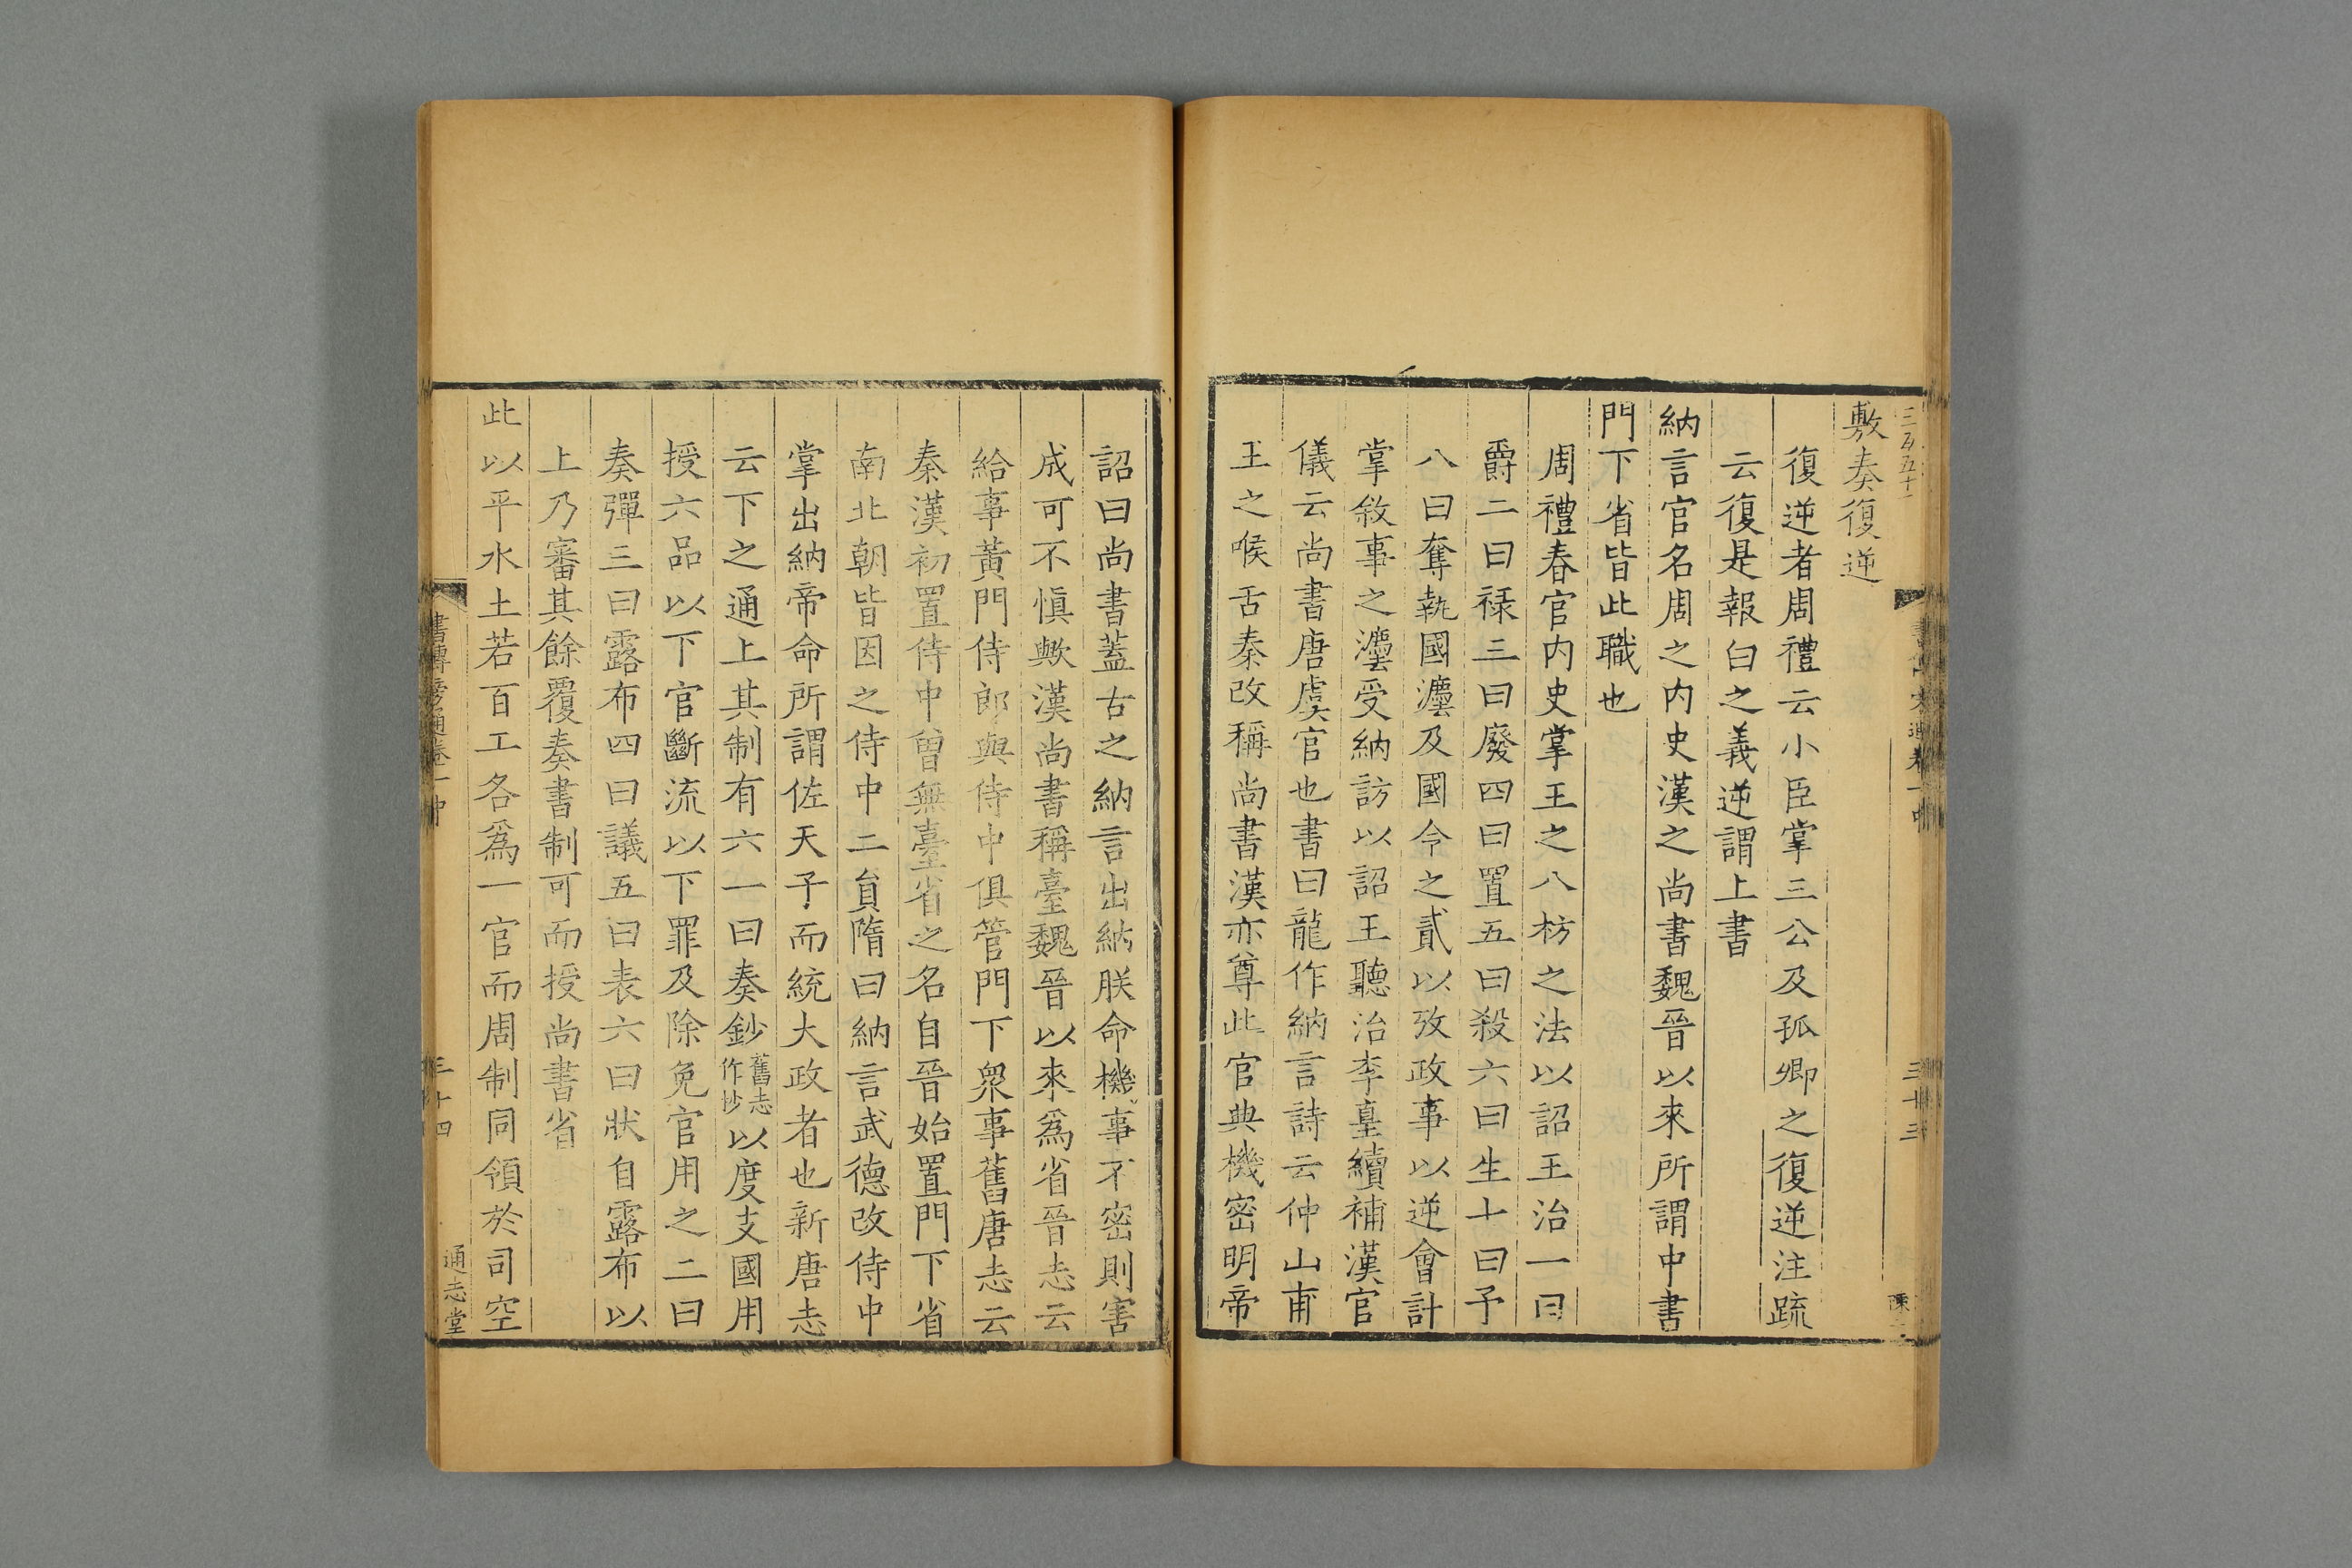 敷奏復逆
復逆者周禮云小臣掌三公及孤卿之復逆注䟽
云復是報白之義逆謂上書
納言官名周之内史漢之尚書魏晉以來所謂中書
門下省皆此職也
周禮春官内史掌王之八枋之法以詔王治一曰
爵二曰祿三曰廢四曰置五曰殺六曰生七曰予
八曰奪執國灋及國令之貳以攷政事以逆會計
掌敘事之灋受納訪以詔王聽治李𡔷續補漢官
儀云尚書唐虞官也書曰龍作納言詩云仲山甫
王之喉舌秦改稱尚書漢亦尊此官典機密明帝
詔曰尚書蓋古之納言出納朕命機事不密則害
成可不慎歟漢尚書稱臺魏晉以來爲省晉志云
給事黃門侍郎與侍中俱管門下衆事舊唐志云
秦漢初置侍中曾無臺省之名自晉始置門下省
南北朝皆因之侍中二貟隋曰納言武德改侍中
掌出納帝命所謂佐天子而統大政者也新唐志
云下之通上其制有六一曰奏鈔舊志作抄以度支國用
授六品以下官斷流以下罪及除免官用之二曰
奏彈三曰露布四曰議五曰表六曰狀自露布以
上乃審其餘覆奏書制可而授尚書省
此以平水土若百工各爲一官而周制同領於司空
書傳旁通卷一中
三十四
通志堂